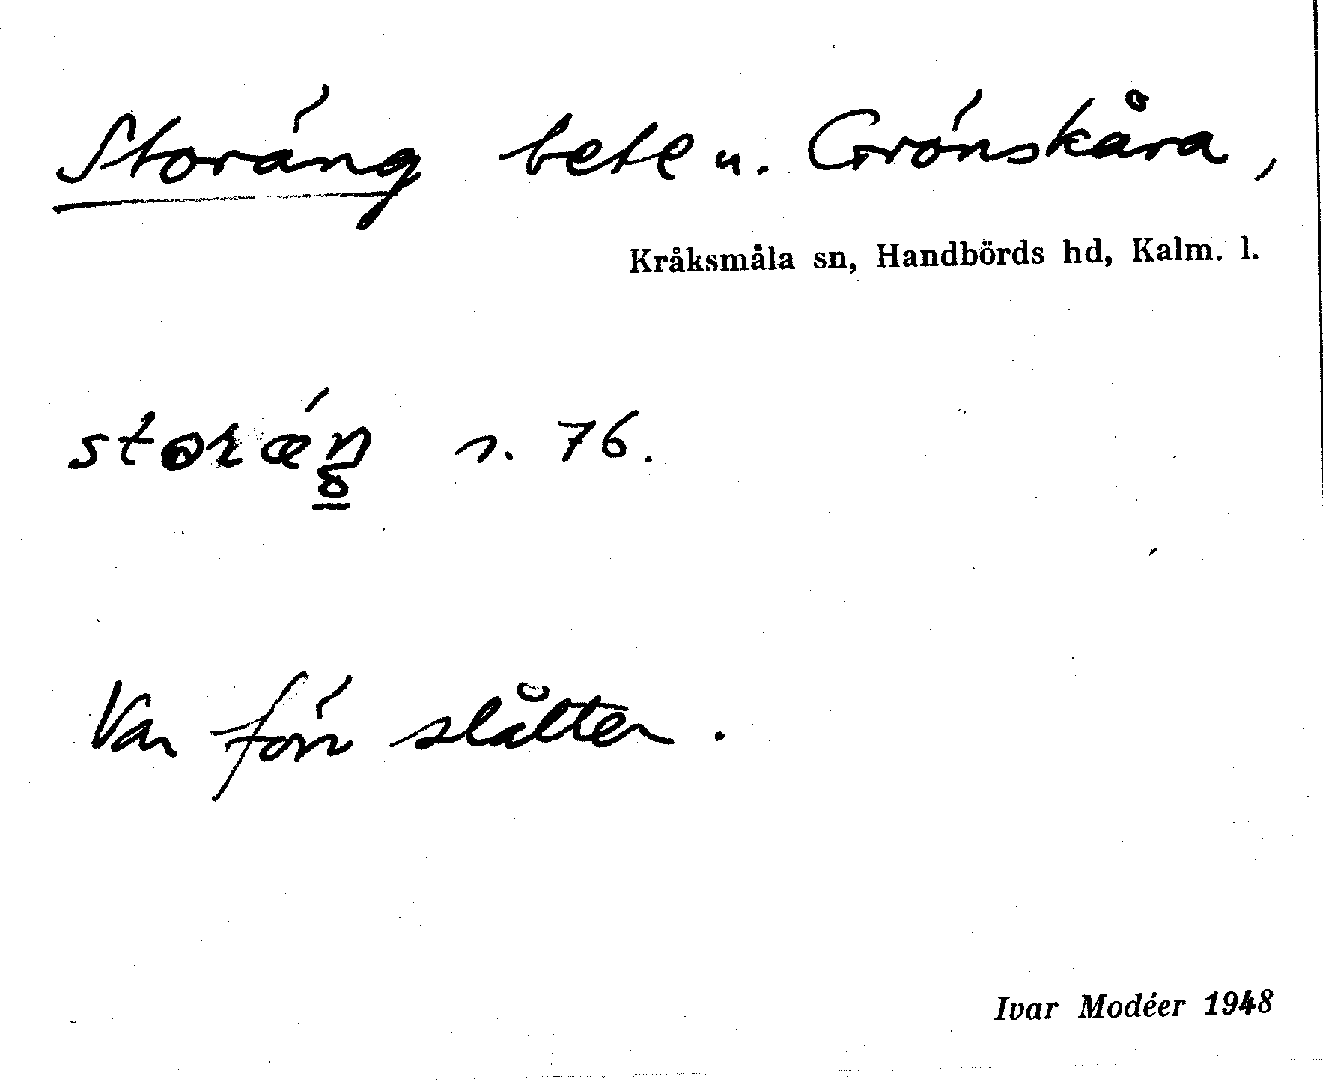 Storäng bete u. Grönskåra,
Kråksmåla sn, Handbörds hd, Kalm. l.
s. 76.
Var förr slåtter.
Ivar Modéer 1948